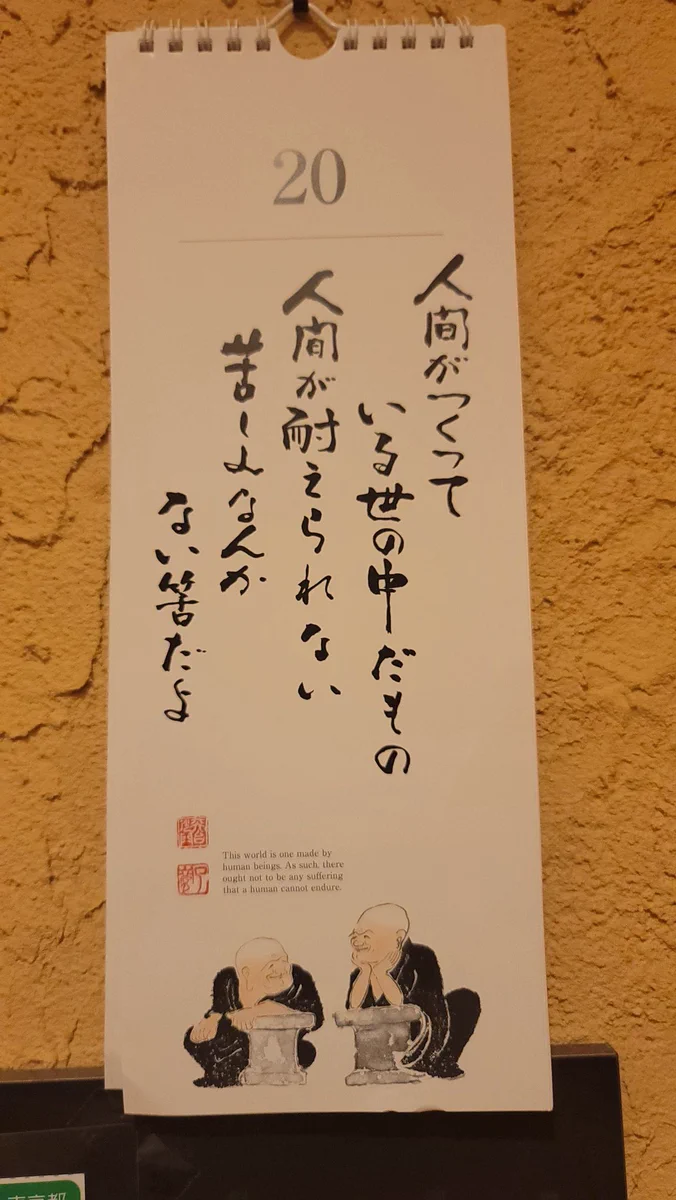 20
人間がつくって
いる世の中だもの
人間が耐えられない
苦しみなんか
ない筈だよ
This world is one made by
human beings. As such, there
ought not to be any suffering
that a human cannot endure.
東京都